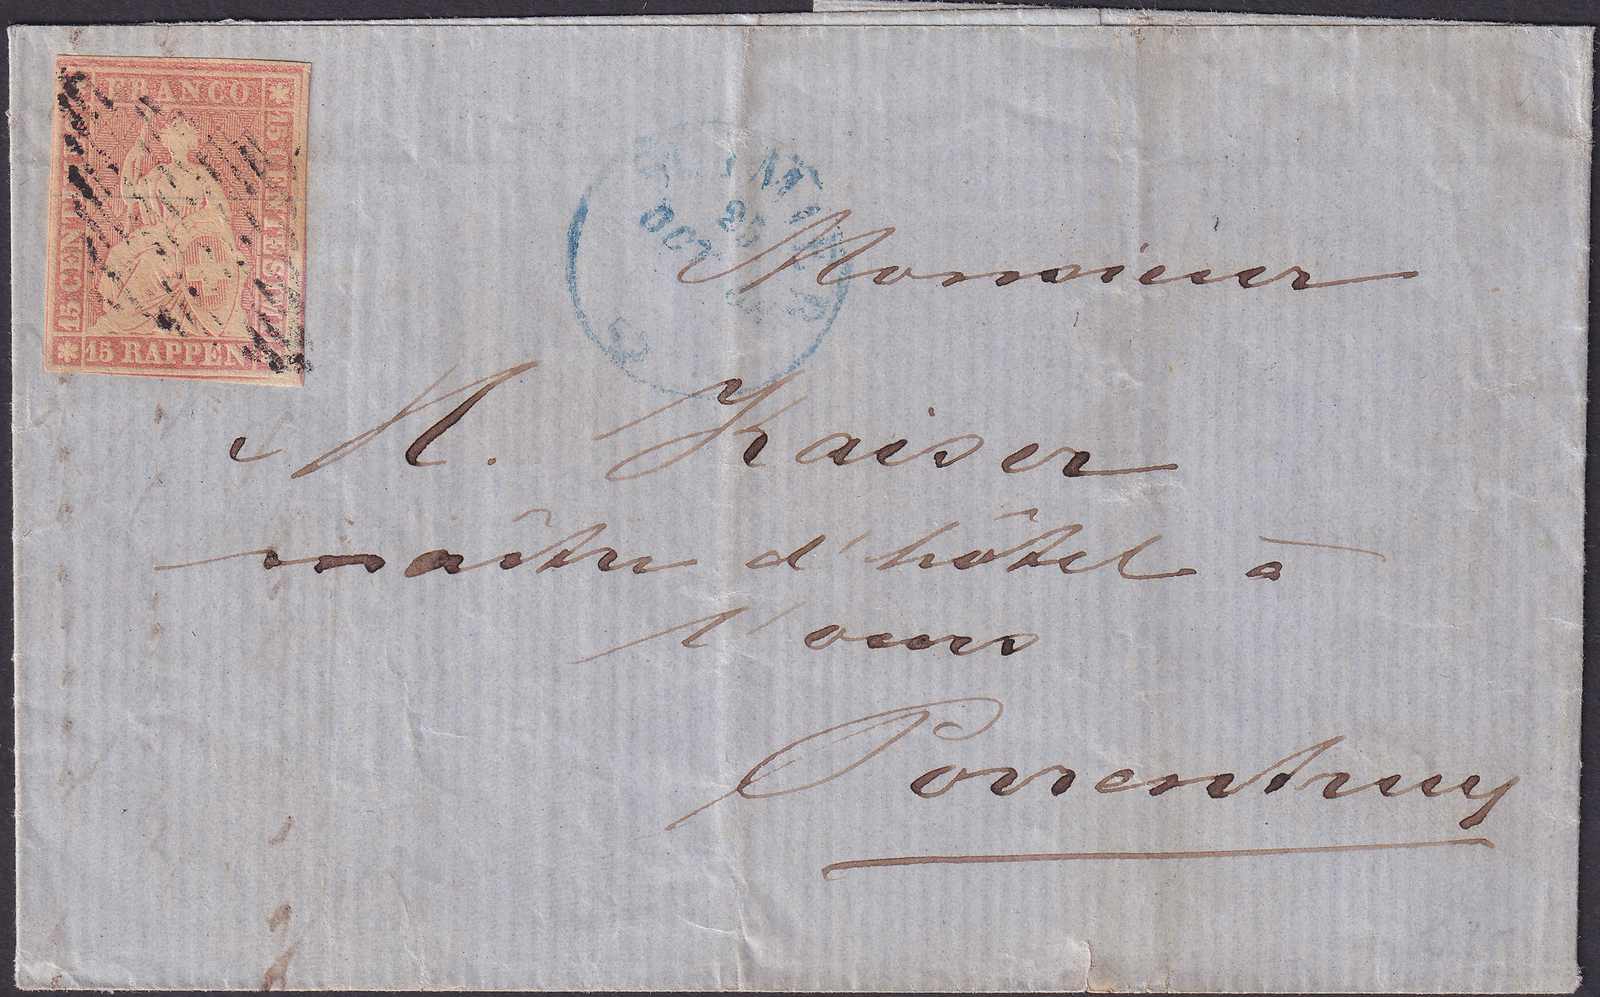 FRANCO
15 CENTES.MI
15 CENT
15 RAPPEN
25
OCT
Monsieur
M. Kaiser
maître d'hôtel à
l'ours
Porrentruy